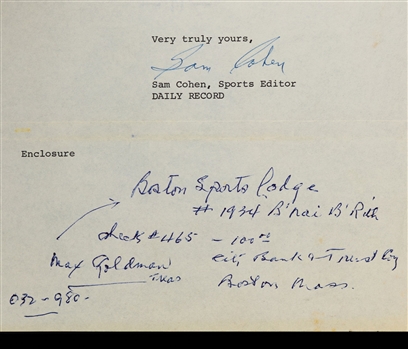 Very truly yours,
Sam Cohen
Sam Cohen, Sports Editor
DAILY RECORD
Enclosure
Boston Sports Lodge
# 1934 B'nai B'rith
check # 465 - 100.00
Max Goldman City Bank & Trust Co
Treas Boston Mass.
032-980-